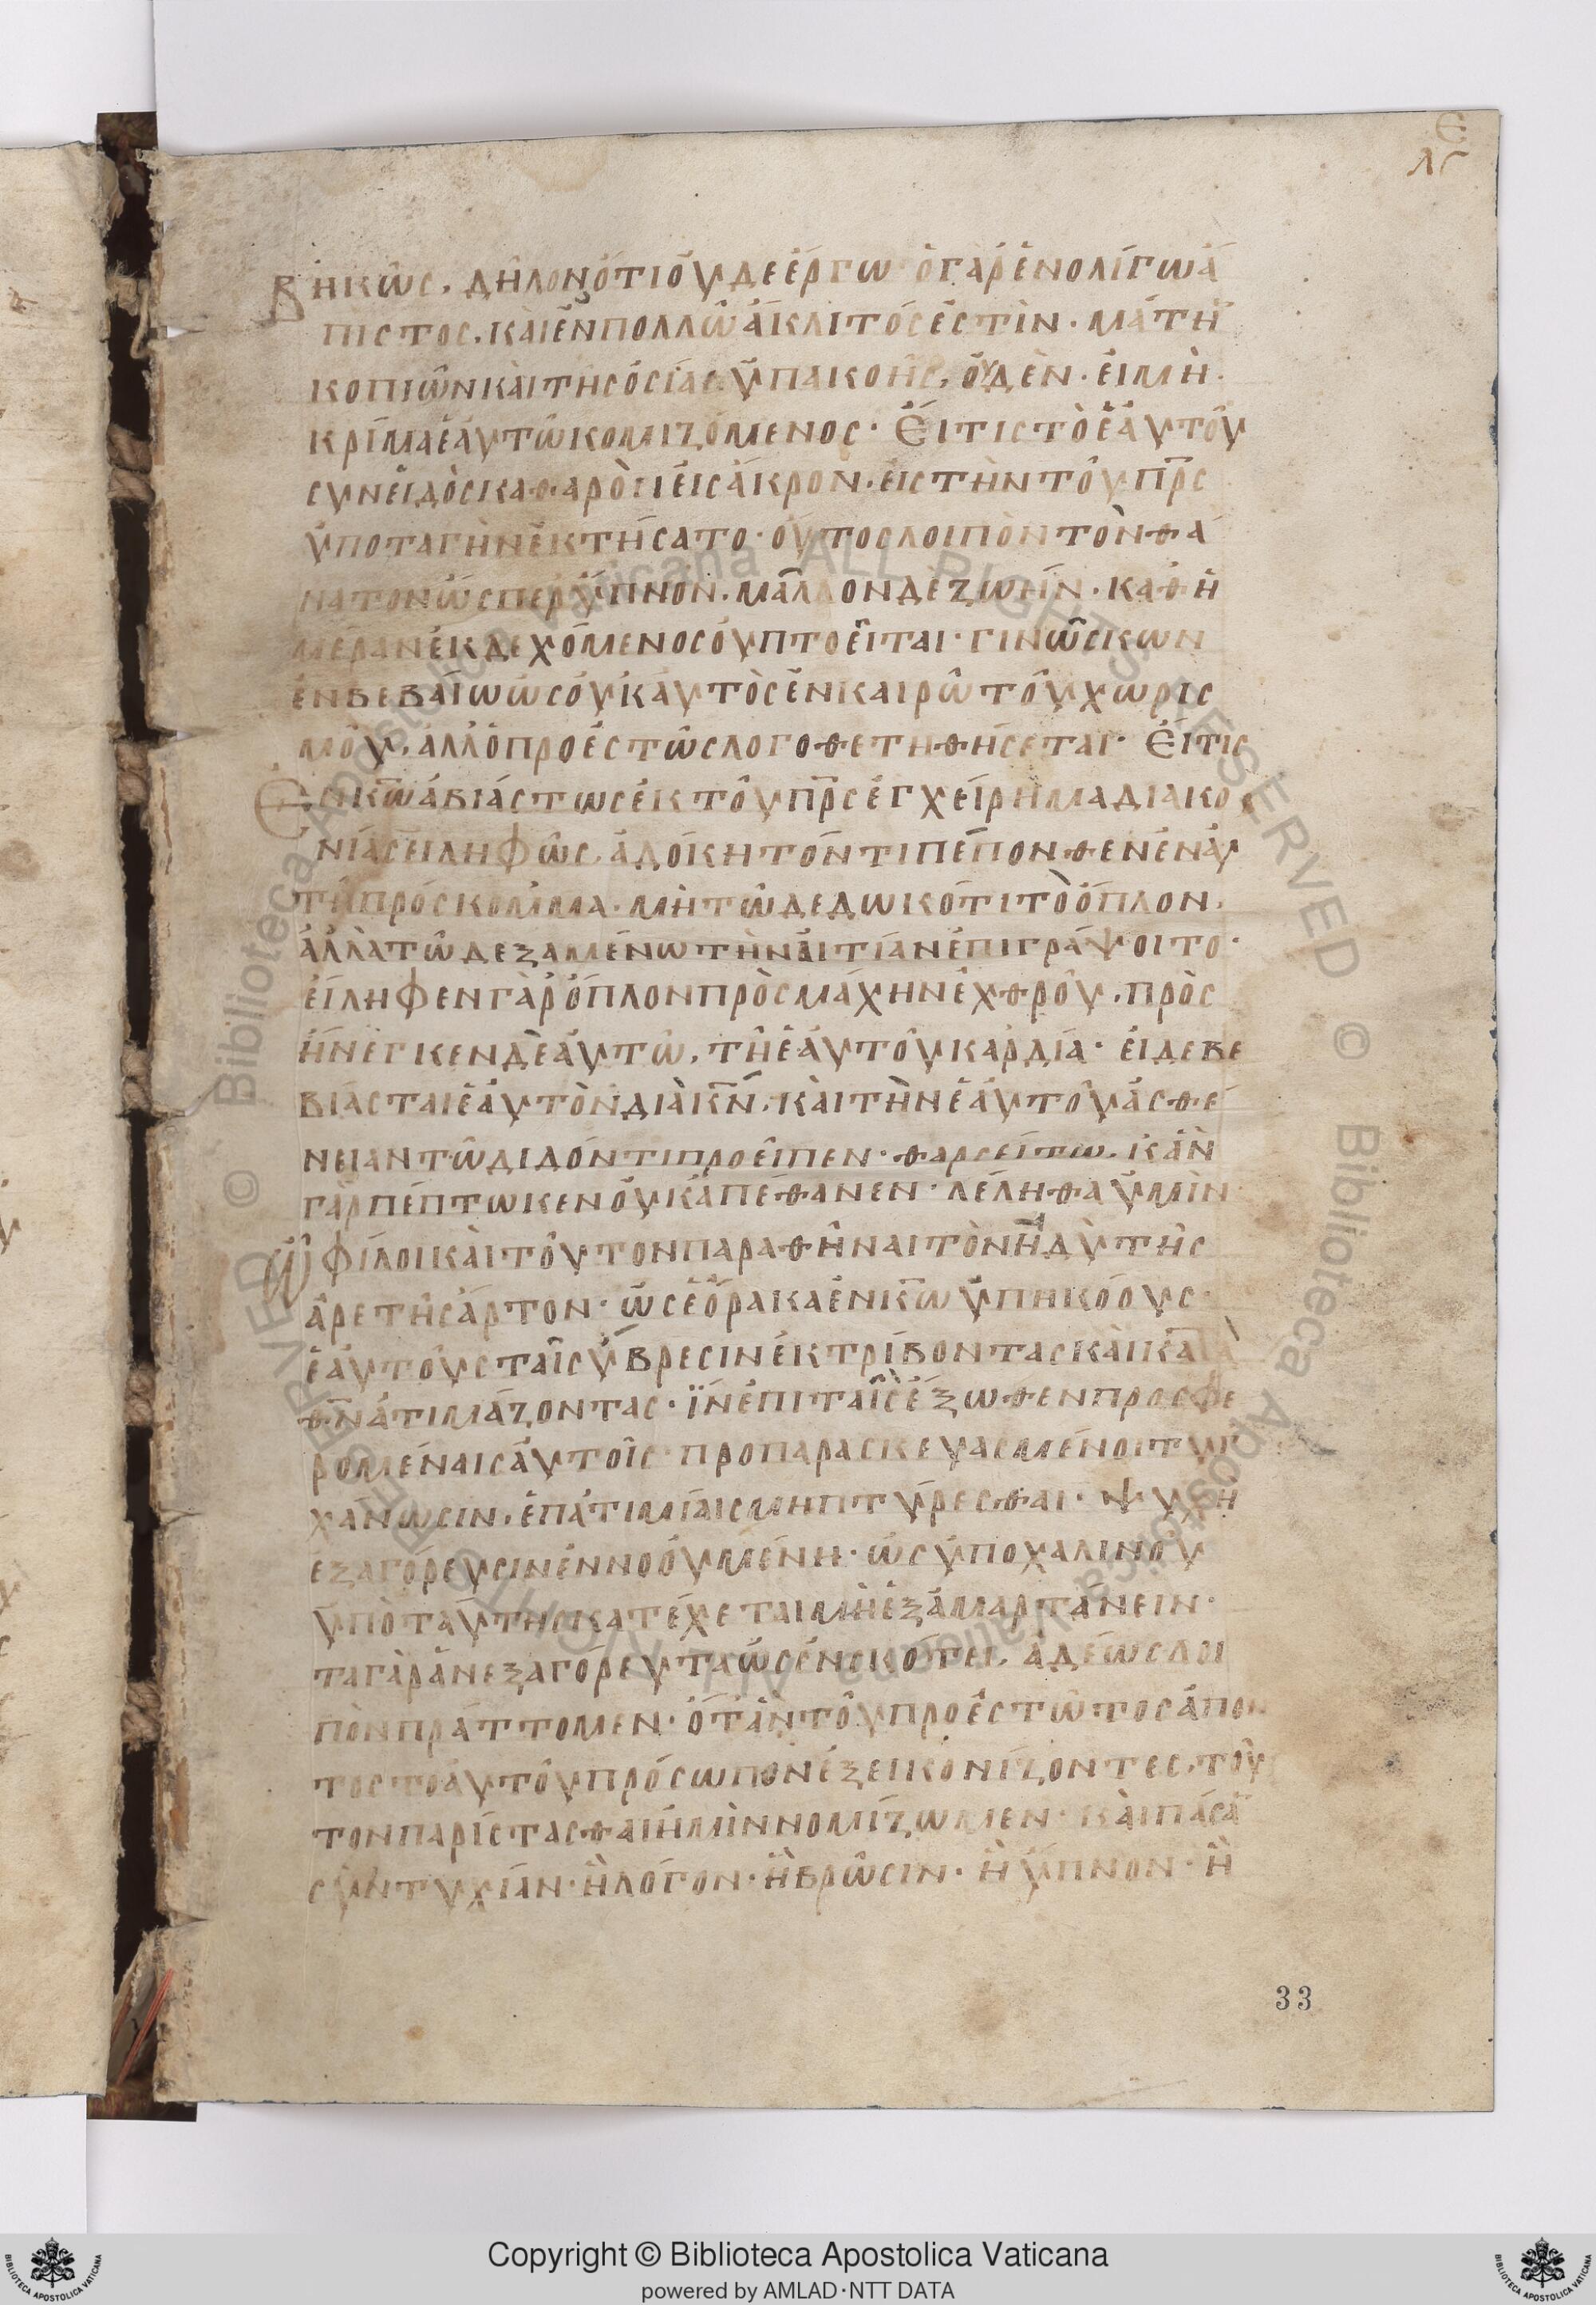 Ε
λϛ
βηκὼς, δῆλον ὅτι οὐδε ἔργω· ὁ γὰρ ἐν ολίγω ἄ
πιστος, καὶ ἐν πολλῶ ἄκλιτός ἐστὶν· μάτη
κοπιῶν καὶ τῆς ὁσίας ὑπακοῆς, οὐδὲν· εἰ μὴ
κρίμα ἑαυτῶ κομιζόμενος· Εἴ τις τὸ ἑαυτοῦ
συνειδὸς καθαρὸν εἰς ἄκρον, εἰς τὴν τοῦ πρ̅ς
ὑποταγὴν ἐκτήσατο· οὗτος λοιπὸν τὸν θά
νατον ὥσπερ ὕπνον, μᾶλλον δὲ ζωήν, καθ ἡ
μέραν ἐκδεχόμενος οὐ πτοεῖται· γινώσκων
ἐν βεβαίω ὡς οὐκ αὐτὸς ἐν καιρῶ τοῦ χωρισ
μοῦ, ἀλλ ὁ προεστὼς λογοθετηθήσεται· Εἴ τις
ἐν κ̅ω ἀβιάστως ἐκ τοῦ πρ̅ς ἐγχείρημα διακο
νίας εἰληφὼς, ἀδόκητόν τι πέπονθεν ἐν αὐ
τῆ πρόσκομμα· μὴ τῶ δεδωκότι τὸ ὅπλον,
ἀλλὰ τῶ δεξαμένω τὴν αἰτίαν ἐπιγράψοιτο·
εἴληφεν γὰρ ὅπλον πρὸς μάχην ἐχθροῦ, πρὸς
ήνεγκεν δὲ αὐτὼ, τῆ ἑαυτοῦ καρδία· εἰ δε βε
βίασται ἑαυτὸν διὰ κ̅ν, καὶ τὴν ἑαυτοῦ ἀσθέ
νειαν τῶ διδόντι προεῖπεν· θαρσείτω, κἂν
γὰρ πέπτωκεν οὐκ ἀπέθανεν· λέληθα ὑμῖν
ὦ φίλοι καὶ τοῦτον παραθῆναι τὸν ἡδὺ τῆς
ἀρετῆς ἄρτον· ὡς ἑόρακα ἐν κ̅ω ὑπηκόους
ἑαυτοὺς ταῖς ὕβρεσιν ἐκτρίβοντας καὶ κατὰ
θ̅ν ἀτιμάζοντας· ἵν ἐπὶ ταῖς ἔξωθεν προσφε
ρομέναις αὐτοῖς προπαρασκευασμένοι τυγ
χάνωσιν, ἐπ ἀτιμίαις μη πτύρεσθαι· ψυχὴ
ἐξαγόρευσιν ἐννοουμένη· ὡς ὑπο χαλινοῦ
ὑπὸ ταύτης κατέχεται μὴ ἐξαμαρτάνειν·
τα γὰρ ἀνεξαγόρευτα ὡς ἐν σκότει, ἀδεῶς λοι
πὸν πράττομεν· ὅταν τοῦ προεστῶτος ἀπόν
τος το αὐτοῦ πρόσωπον ἐξεικονίζοντες, τοῦ
τον παρίστασθαι ἡμῖν νομίζωμεν· καὶ πᾶσα
συντυχίαν· ἢ λόγον· ἢ βρῶσιν· ἢ ὕπνον· ἢ
33
Copyright © Biblioteca Apostolica Vaticana
powered by AMLAD·NTT DATA